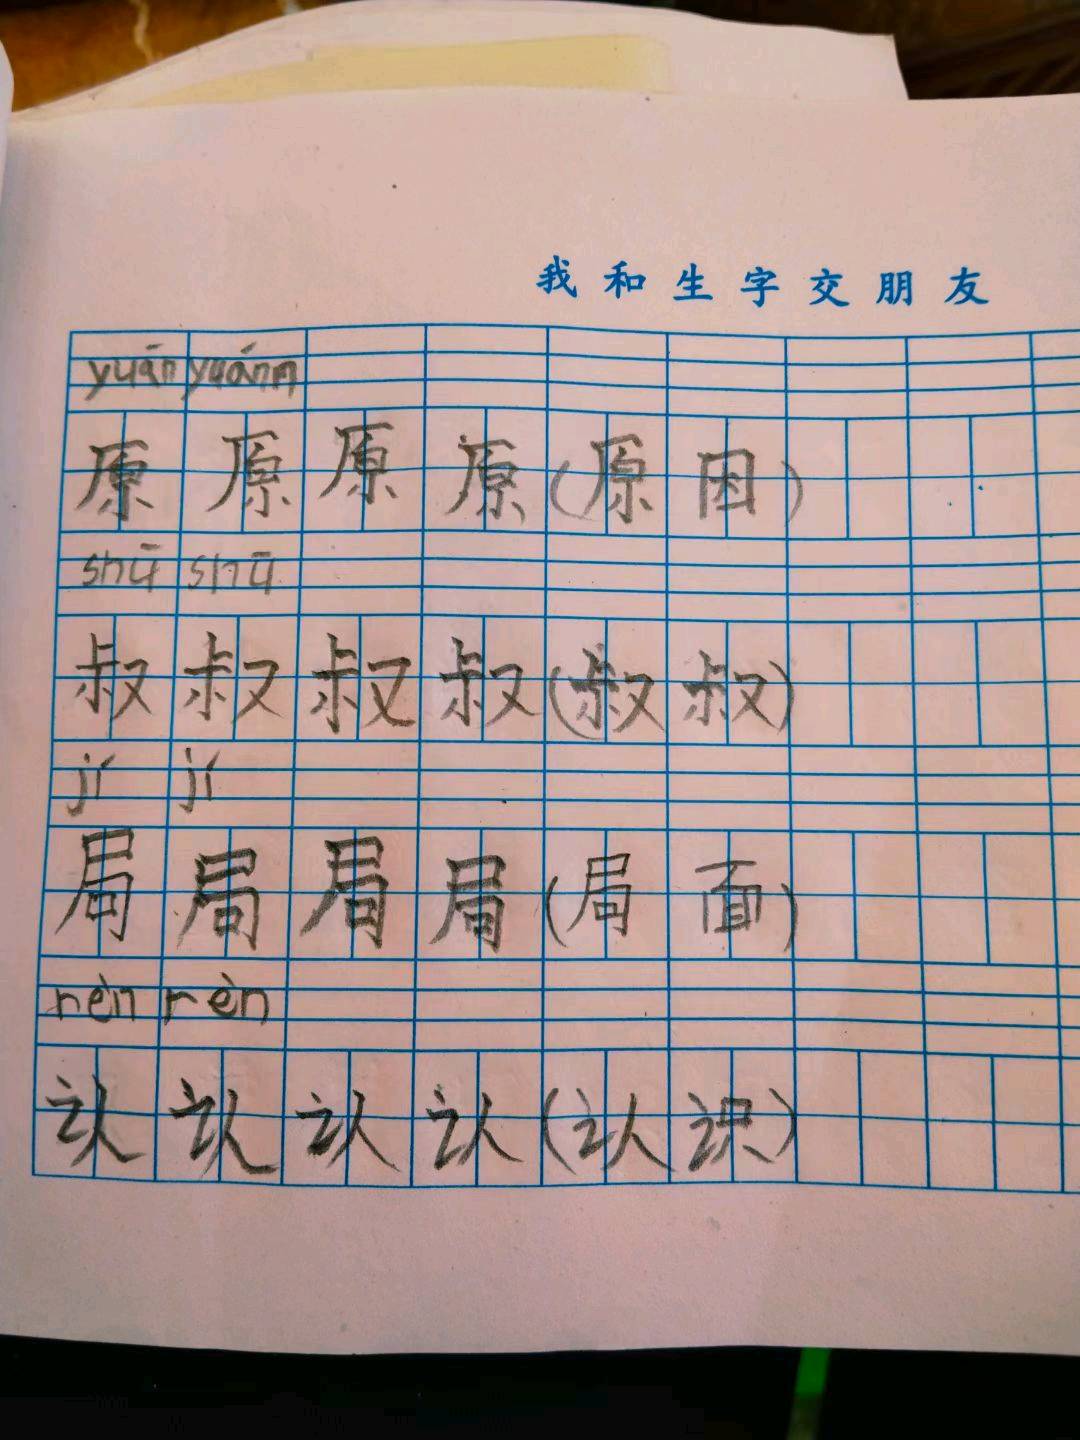 我和生字交朋友
yuán yuánn
原 原 原 原 (原 因)
shū shū
叔 叔 叔 叔 (叔 叔)
jí jí
局 局 局 局 (局 面)
rèn rèn
认 认 认 认 (认 识)